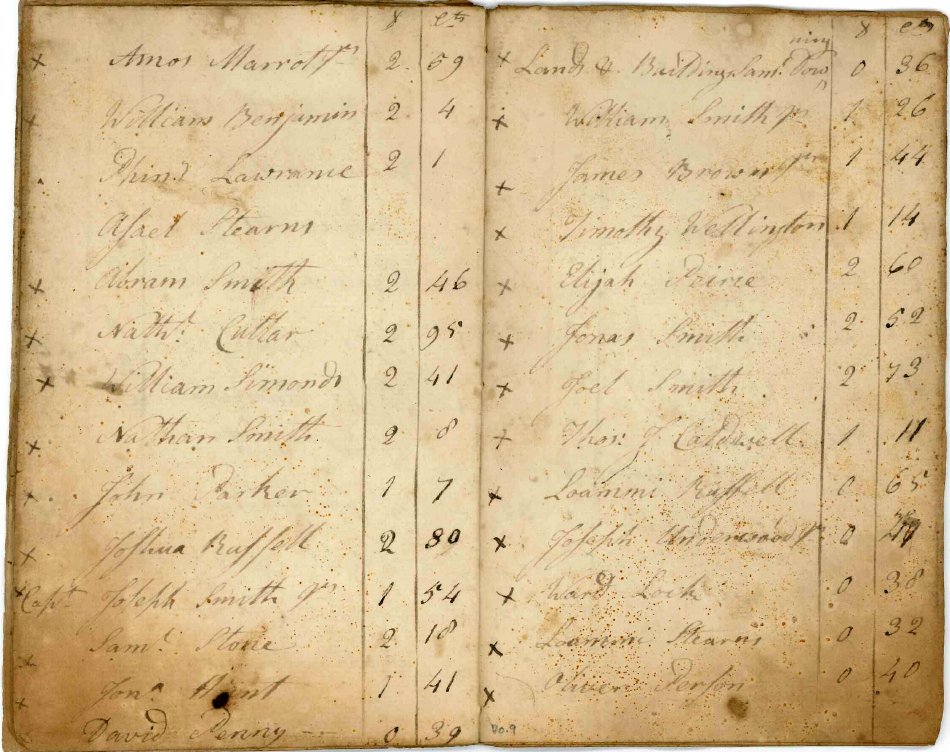 $ cts
x Amos Marrott Jr 2 59
x William Benjamin 2 4
Phin.s Lawrance 2 1
Asael Stearns
x Abram Smith 2 46
x Nath.l Cutlar 2 95
x William Simonds 2 41
x Nathan Smith 2 8
x John Parker 1 7
x Joshua Russell 2 80
x Capt Joseph Smith Jnr 1 54
x Sam.l Stone 2 18
x Jon.a Hunt 1 41
David Penny 0 39
$ cts
ning
x Lands & Buildings Sam.l Dow 0 36
x William Smith Jr 1 26
x James Brown Jnr 1 44
x Timothy Wellington 1 14
x Elijah Peirce 2 60
x Jonas Smith 2 52
x Joel Smith 2 73
x Thos. J Caldwell 1 11
x Loammi Russell 0 65
x Joseph Underwood Jr 0
x Ward Lock 0 38
x Loammi Stearns 0 32
x Oliver Person 0 40
No. 9